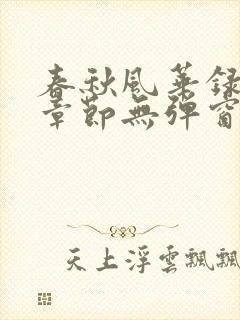 春秋風華錄
章節無彈窗
天上浮雲飄飄